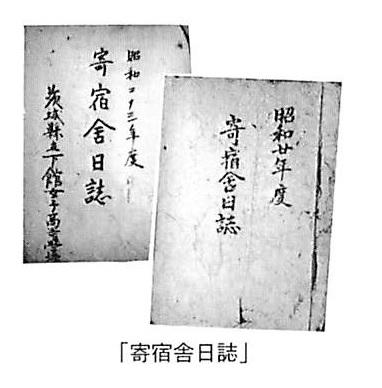 昭和二十三年度
寄宿舎日誌
茨城縣立下館女子高等學校
昭和廿年度
寄宿舎日誌
「寄宿舎日誌」